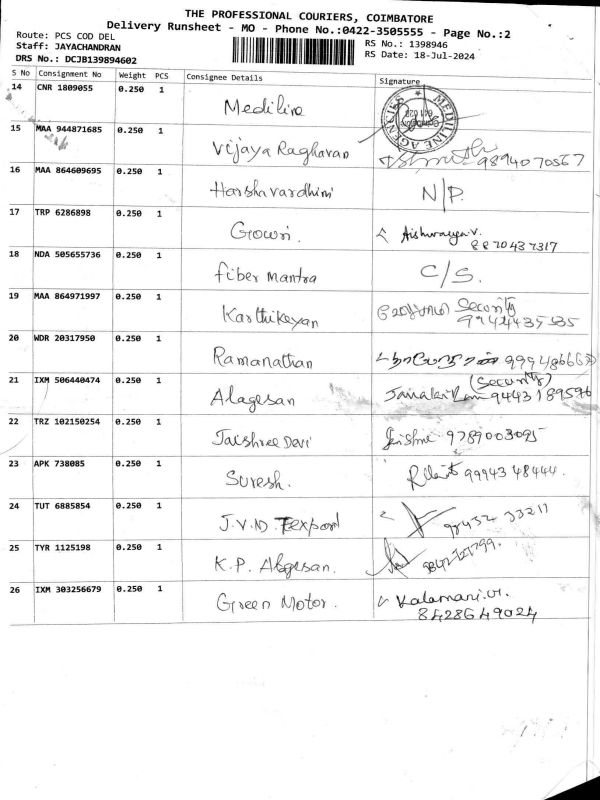 THE PROFESSIONAL COURIERS, COIMBATORE
Delivery Runsheet - MO - Phone No.:0422-3505555 - Page No.:2
Route: PCS COD DEL
RS No.: 1398946
Staff: JAYACHANDRAN
RS Date: 18-Jul-2024
DRS No.: DCJB139894602
S No Consignment No Weight PCS Consignee Details Signature
14 CNR 1809055 0.250 1 Mediline MEDILINE AGENCIES
15 MAA 944871685 0.250 1 Vijaya Raghavan 9894070567
16 MAA 864609695 0.250 1 Harshavardhini N/P.
17 TRP 6286898 0.250 1 Gowri. Aishwarya V.
8870437317
18 NDA 505655736 0.250 1 fiber mantra C/S.
19 MAA 864971997 0.250 1 Karthikeyan Security
9944435535
20 WDR 20317950 0.250 1 Ramanathan
21 IXM 506440474 0.250 1 Alagesan (Security)
Janaki Ram 9443189596
22 TRZ 102150254 0.250 1 Jaishree Devi 9789003095
23 APK 738085 0.250 1 Suresh. 99943 48444.
24 TUT 6885854 0.250 1 J.V.D. Export 98432 33211
25 TYR 1125198 0.250 1 K.P. Alagesan.
26 IXM 303256679 0.250 1 Green Motor. Kalamani.
8428649024